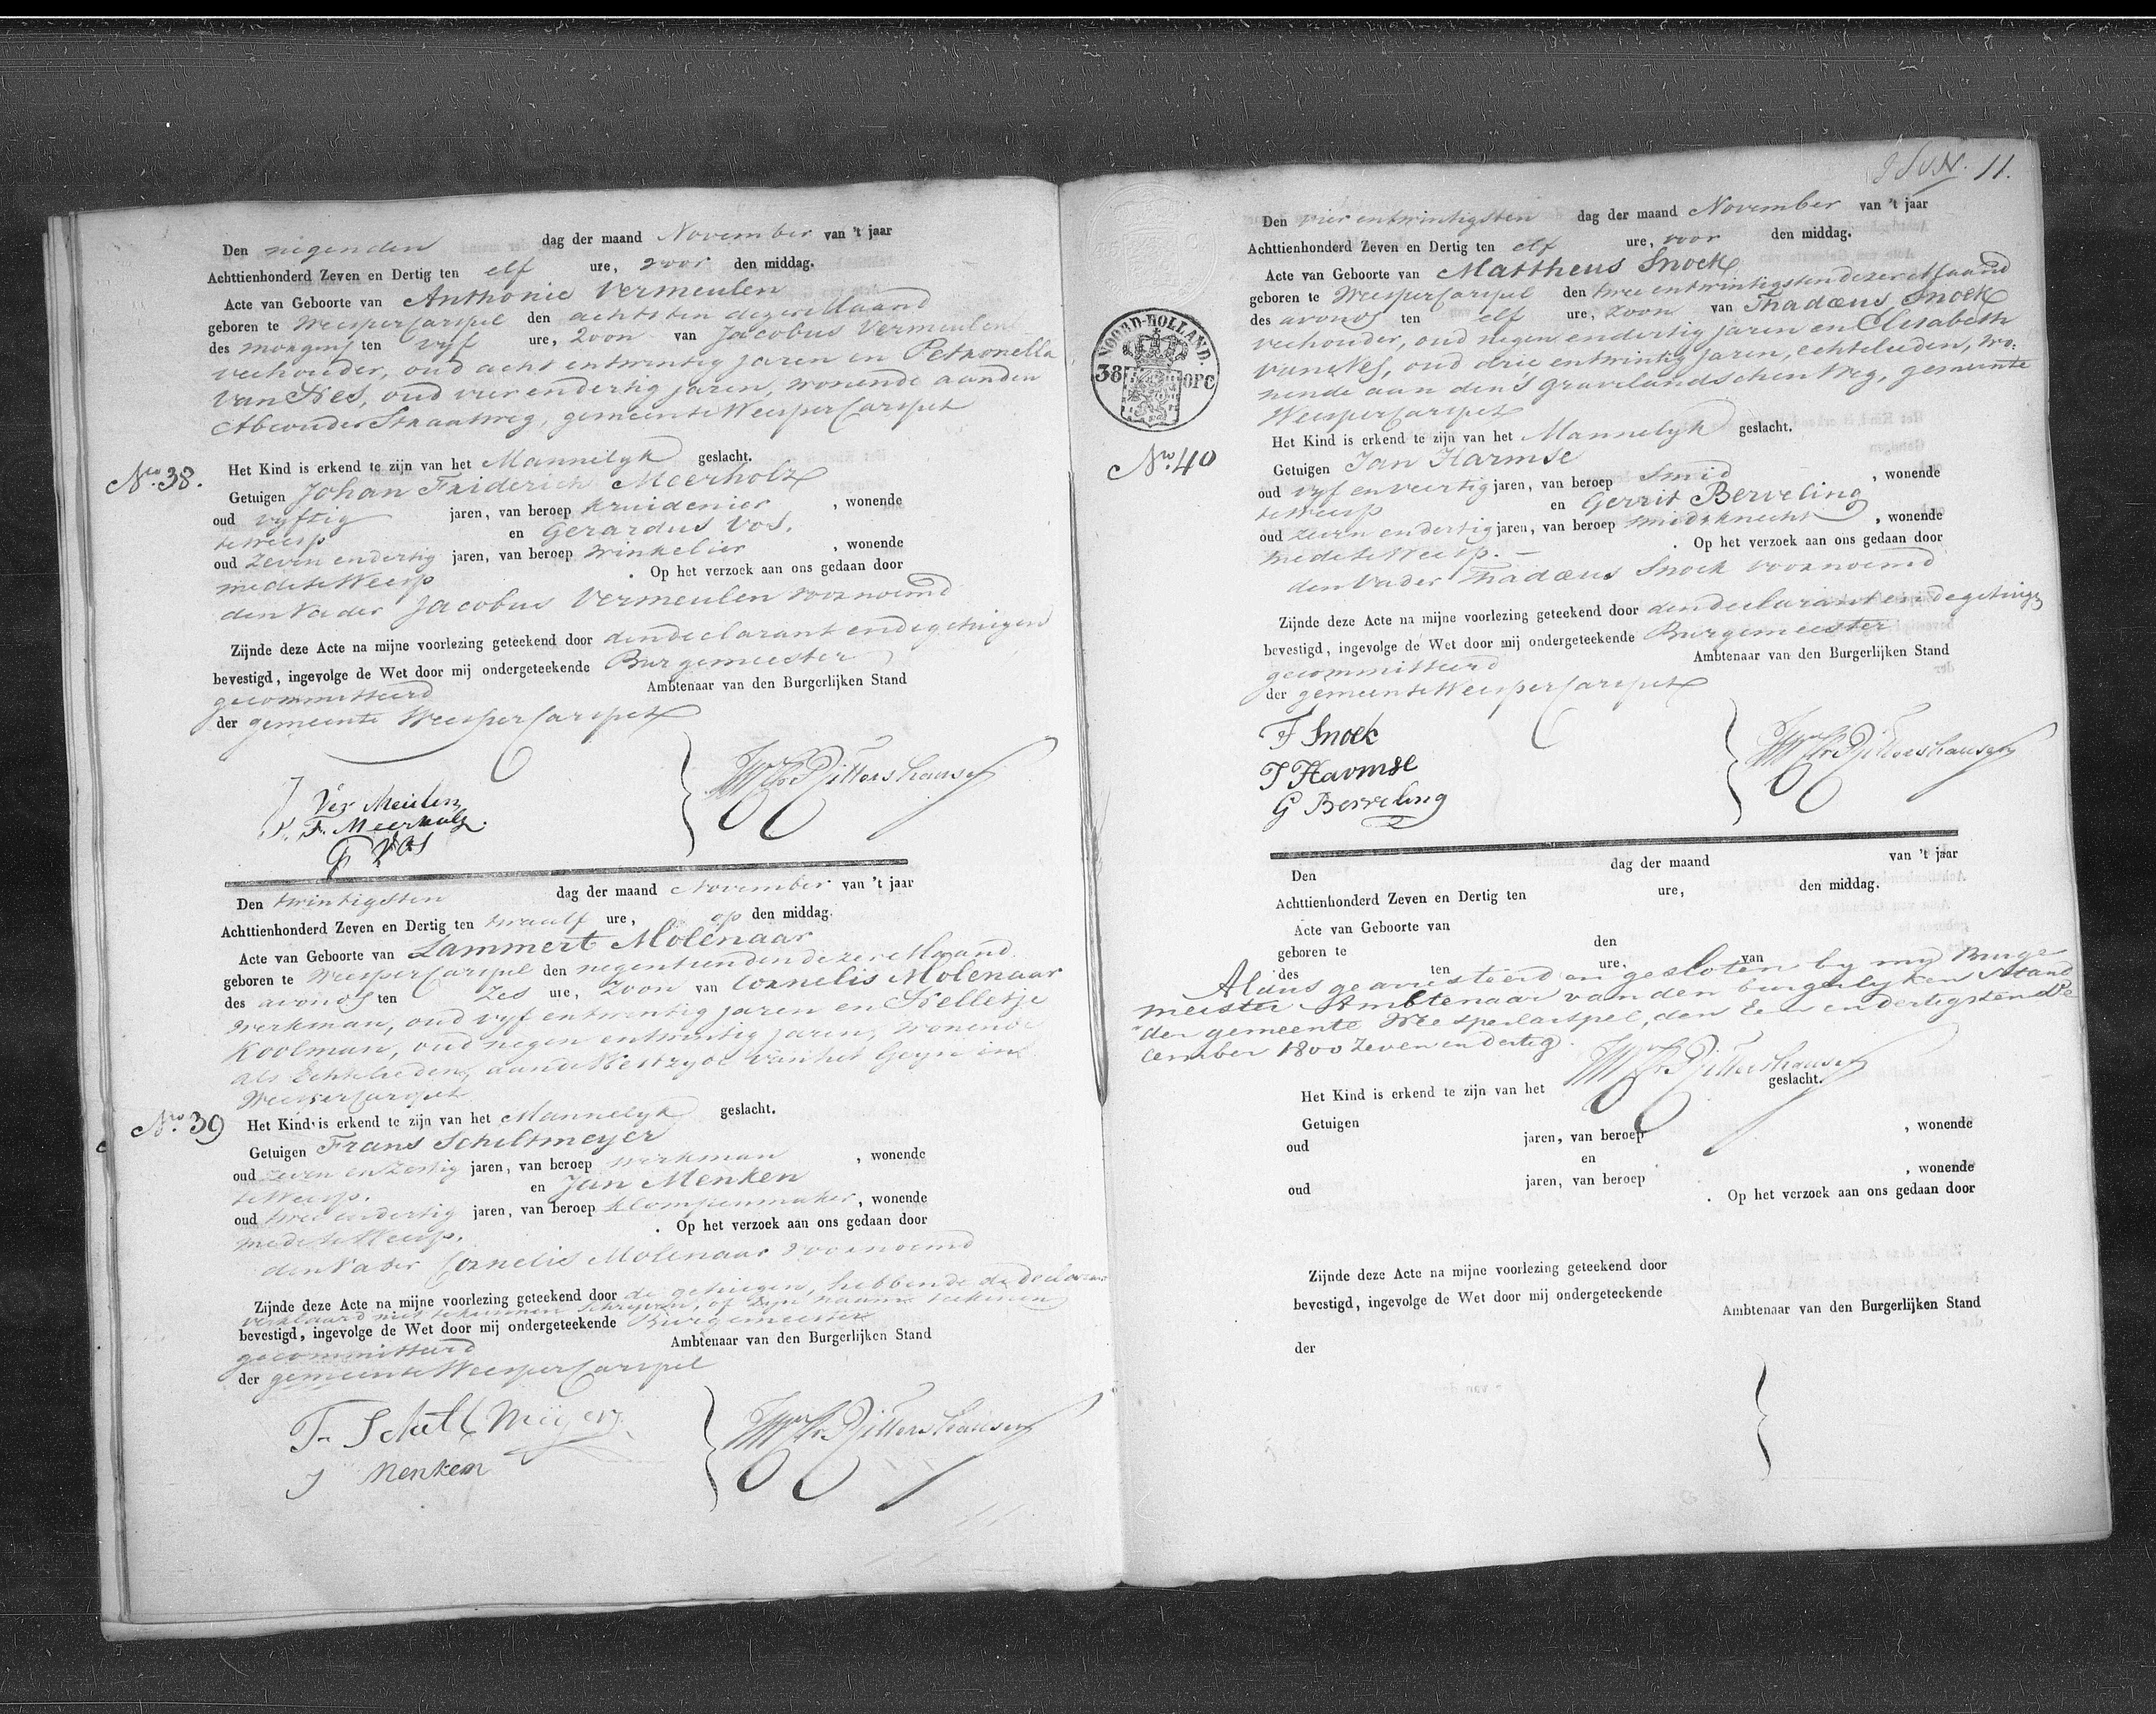 Den negenden dag der maand November van 't jaar
Achttienhonderd Zeven en Dertig ten elf ure, voor den middag.
Acte van Geboorte van Anthonie Vermeulen
geboren te Weespercarspel den achtsten dezer Maand
des morgens ten vyf ure, Zoon van Jacobus Vermeulen
veehouder, oud acht entwintig jaren en Petronella
van Nes, oud vier endertig jaren, wonende aanden
Abcouder Straatweg, gemeente Weespercarspel
No. 38.
Het Kind is erkend te zijn van het Mannelyk geslacht.
Getuigen Johan Friderich Meerholz
oud vyftig jaren, van beroep kruidenier, wonende
te Weesp en Gerardus Vos.
oud Zeven endertig jaren, van beroep winkelier, wonende
mede te Weesp. Op het verzoek aan ons gedaan door
den Vader Jacobus Vermeulen voornoemd
Zijnde deze Acte na mijne voorlezing geteekend door den declarant en de getuigen
bevestigd, ingevolge de Wet door mij ondergeteekende Burgemeester
gecommitteerd Ambtenaar van den Burgerlijken Stand
der gemeente Weespercarspel
J Ver Meulen
J. F. Meerholz.
G Vos
Den twintigsten dag der maand November van 't jaar
Achttienhonderd Zeven en Dertig ten twaalf ure, op den middag.
Acte van Geboorte van Lammert Molenaar
geboren te Weespercarspel den negentienden dezer Maand
des avonds ten Zes ure, Zoon van Cornelis Molenaar
werkman, oud vyf entwintig jaren en
Koolman, oud negen entwintig jaren, wonende
als Echtelieden, aan de Westzyde van het Geyn in
Weespercarspel
No. 39
Het Kind is erkend te zijn van het Mannelyk geslacht.
Getuigen Frans Schiltmeyer
oud zeven en zestig jaren, van beroep werkman, wonende
te Weesp. en Jan Menken
oud twee endertig jaren, van beroep klompenmaker, wonende
mede te Weesp. Op het verzoek aan ons gedaan door
den Vader Cornelis Molenaar voornoemd
Zijnde deze Acte na mijne voorlezing geteekend door de getuigen, hebbende de declarant
verklaard niet te kunnen schryven, of zyn naam teekenen
bevestigd, ingevolge de Wet door mij ondergeteekende Burgemeester
gecommitteerd Ambtenaar van den Burgerlijken Stand
der gemeente Weespercarspel
J Menken
11.
Den vier entwintigsten dag der maand November van 't jaar
Achttienhonderd Zeven en Dertig ten elf ure, voor den middag.
Acte van Geboorte van Mattheus Snoek
geboren te Weespercarspel den twee entwintigsten dezer Maand
des avonds ten elf ure, Zoon van Thadæus Snoek
veehouder, oud negen endertig jaren en Elisabeth
van Nes, oud drie entwintig jaren, echtelieden, wo:
nende aan den 's Gravelandschen Weg, gemeente
Weespercarspel
NOORD-HOLLAND
38 OPC
No. 40
Het Kind is erkend te zijn van het Mannelyk geslacht.
Getuigen Jan Harmse
oud vyf en veertig jaren, van beroep Smid, wonende
te Weesp en Gerrit Berveling
oud zeven endertig jaren, van beroep smidsknecht, wonende
mede te Weesp. Op het verzoek aan ons gedaan door
den Vader Thadæus Snoek voornoemd
Zijnde deze Acte na mijne voorlezing geteekend door den declarant en de getuigen
bevestigd, ingevolge de Wet door mij ondergeteekende Burgemeester
gecommitteerd Ambtenaar van den Burgerlijken Stand
der gemeente Weespercarspel
T Snoek
J Harmse
G Berveling
Den dag der maand van 't jaar
Achttienhonderd Zeven en Dertig ten ure, den middag.
Acte van Geboorte van
geboren te den
des ten ure, van
Aldus gearresteerd en gesloten by my Burge
meester Ambtenaar van den burgerlyken Stand
der gemeente Weespercarspel, den Een en dertigsten De
cember 1800 Zeven en dertig.
Het Kind is erkend te zijn van het geslacht.
Getuigen
oud jaren, van beroep, wonende
en
oud jaren, van beroep, wonende
. Op het verzoek aan ons gedaan door
Zijnde deze Acte na mijne voorlezing geteekend door
bevestigd, ingevolge de Wet door mij ondergeteekende
Ambtenaar van den Burgerlijken Stand
der